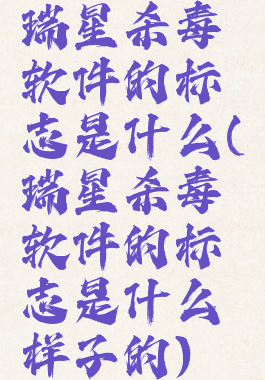 瑞星杀毒
软件的标
志是什么(
瑞星杀毒
软件的标
志是什么
样子的)